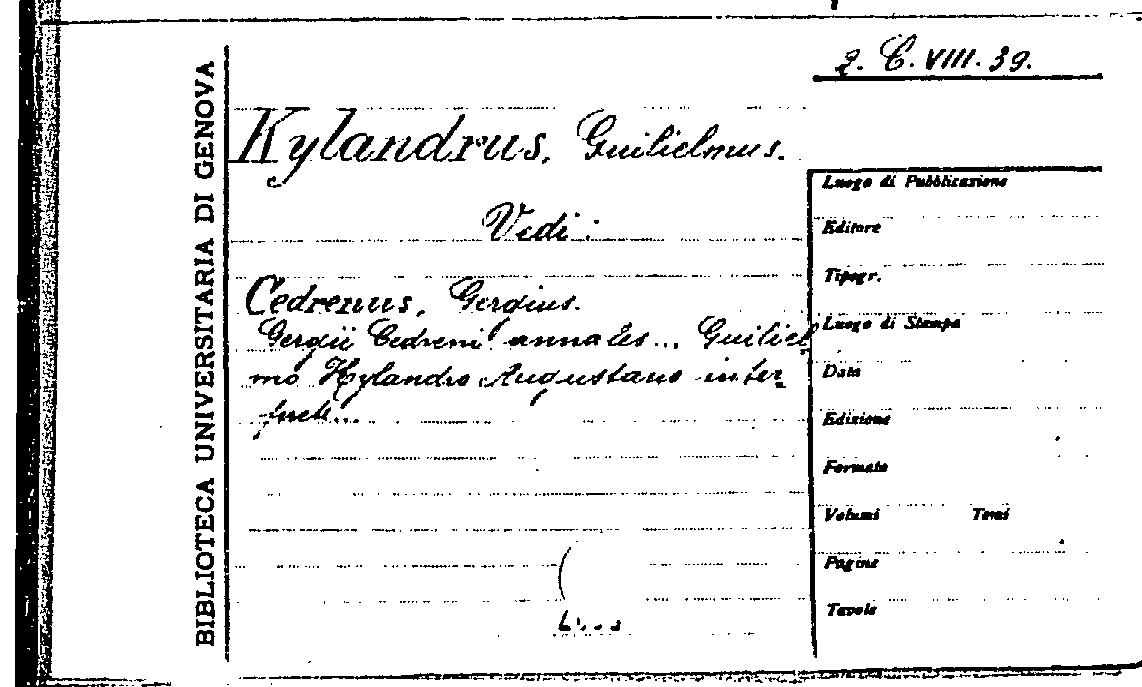 2. C. VIII. 39.
BIBLIOTECA UNIVERSITARIA DI GENOVA
Kylandrus, Guilielmus.
Vedi:
Cedrenus, Gergius.
Gergii Cedreni annales... Guiliel
mo Kylandro Augustano inter_
prete...
Luogo di Pubblicazione
Editore
Tipogr.
Luogo di Stampa
Data
Edizione
Formato
Volumi Tomi
Pagine
Tavole